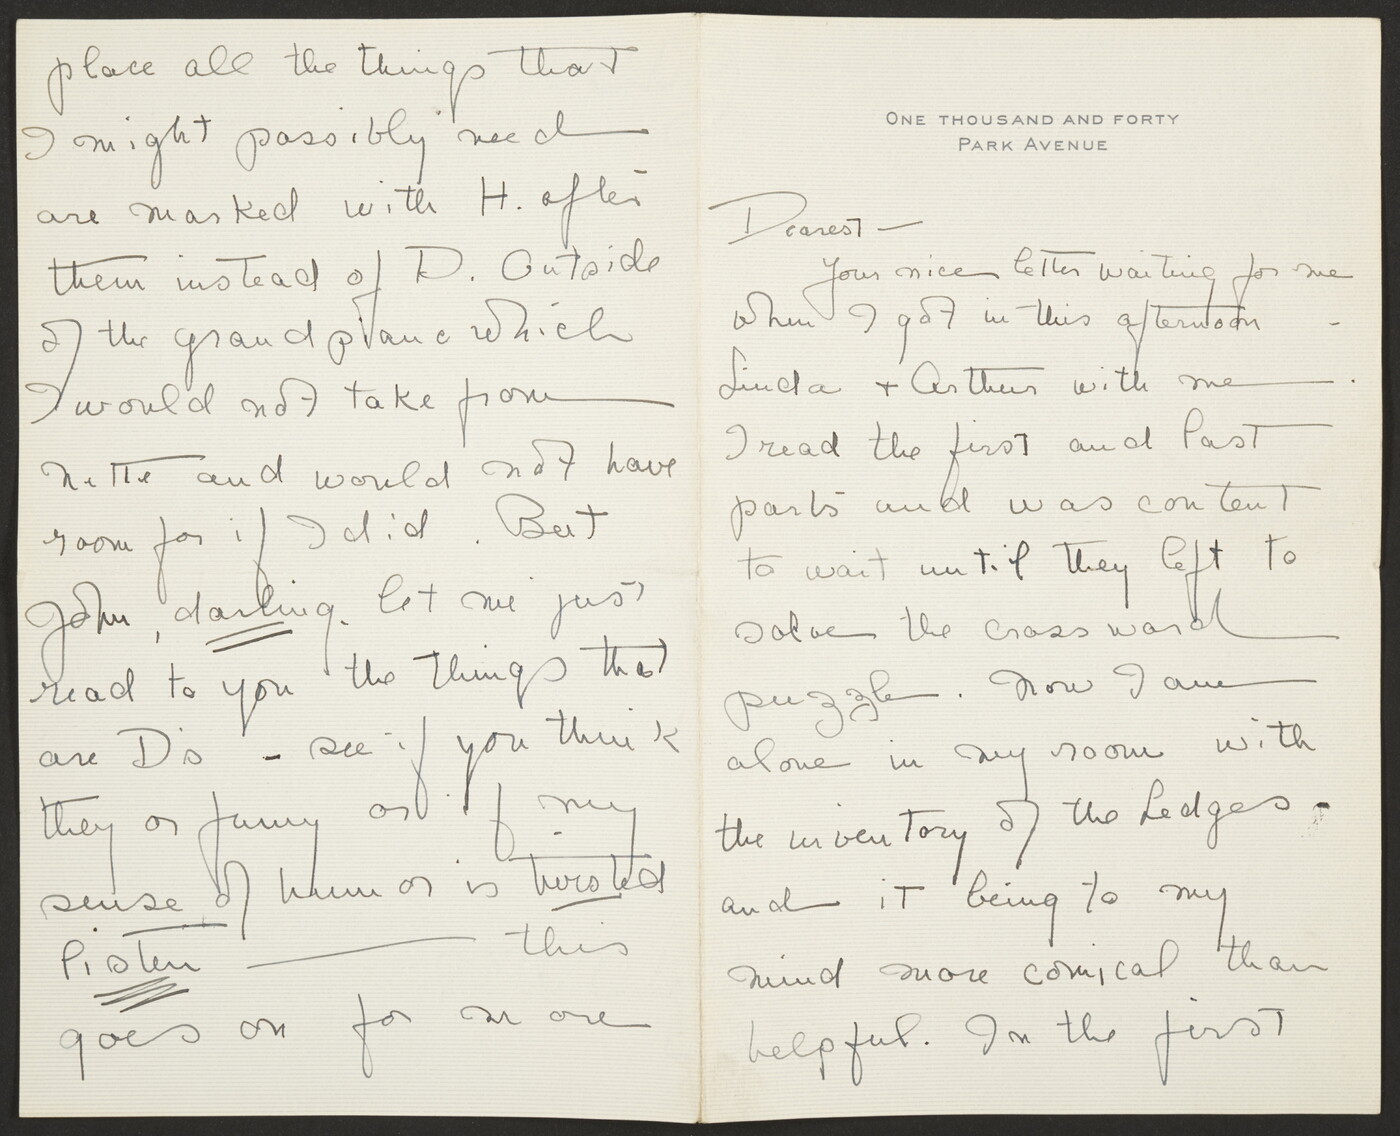 ONE THOUSAND AND FORTY
PARK AVENUE
Dearest —
Your nice letter waiting for me
when I got in this afternoon -
Linda + Arthur with me.
I read the first and last
parts and was content
to wait until they left to
solve the crossword
puzzle. Now I am
alone in my room with
the inventory of the Ledges -
and it being to my
mind more comical than
helpful. In the first
place all the things that
I might possibly need
are marked with H. after
them instead of D. Outside
of the grand piano which
I would not take from
and would not have
room for if I did. But
John, darling. let me just
read to you the things that
are D's - see if you think
they or funny or if my
sense of humor is twisted
listen — this
goes on for more